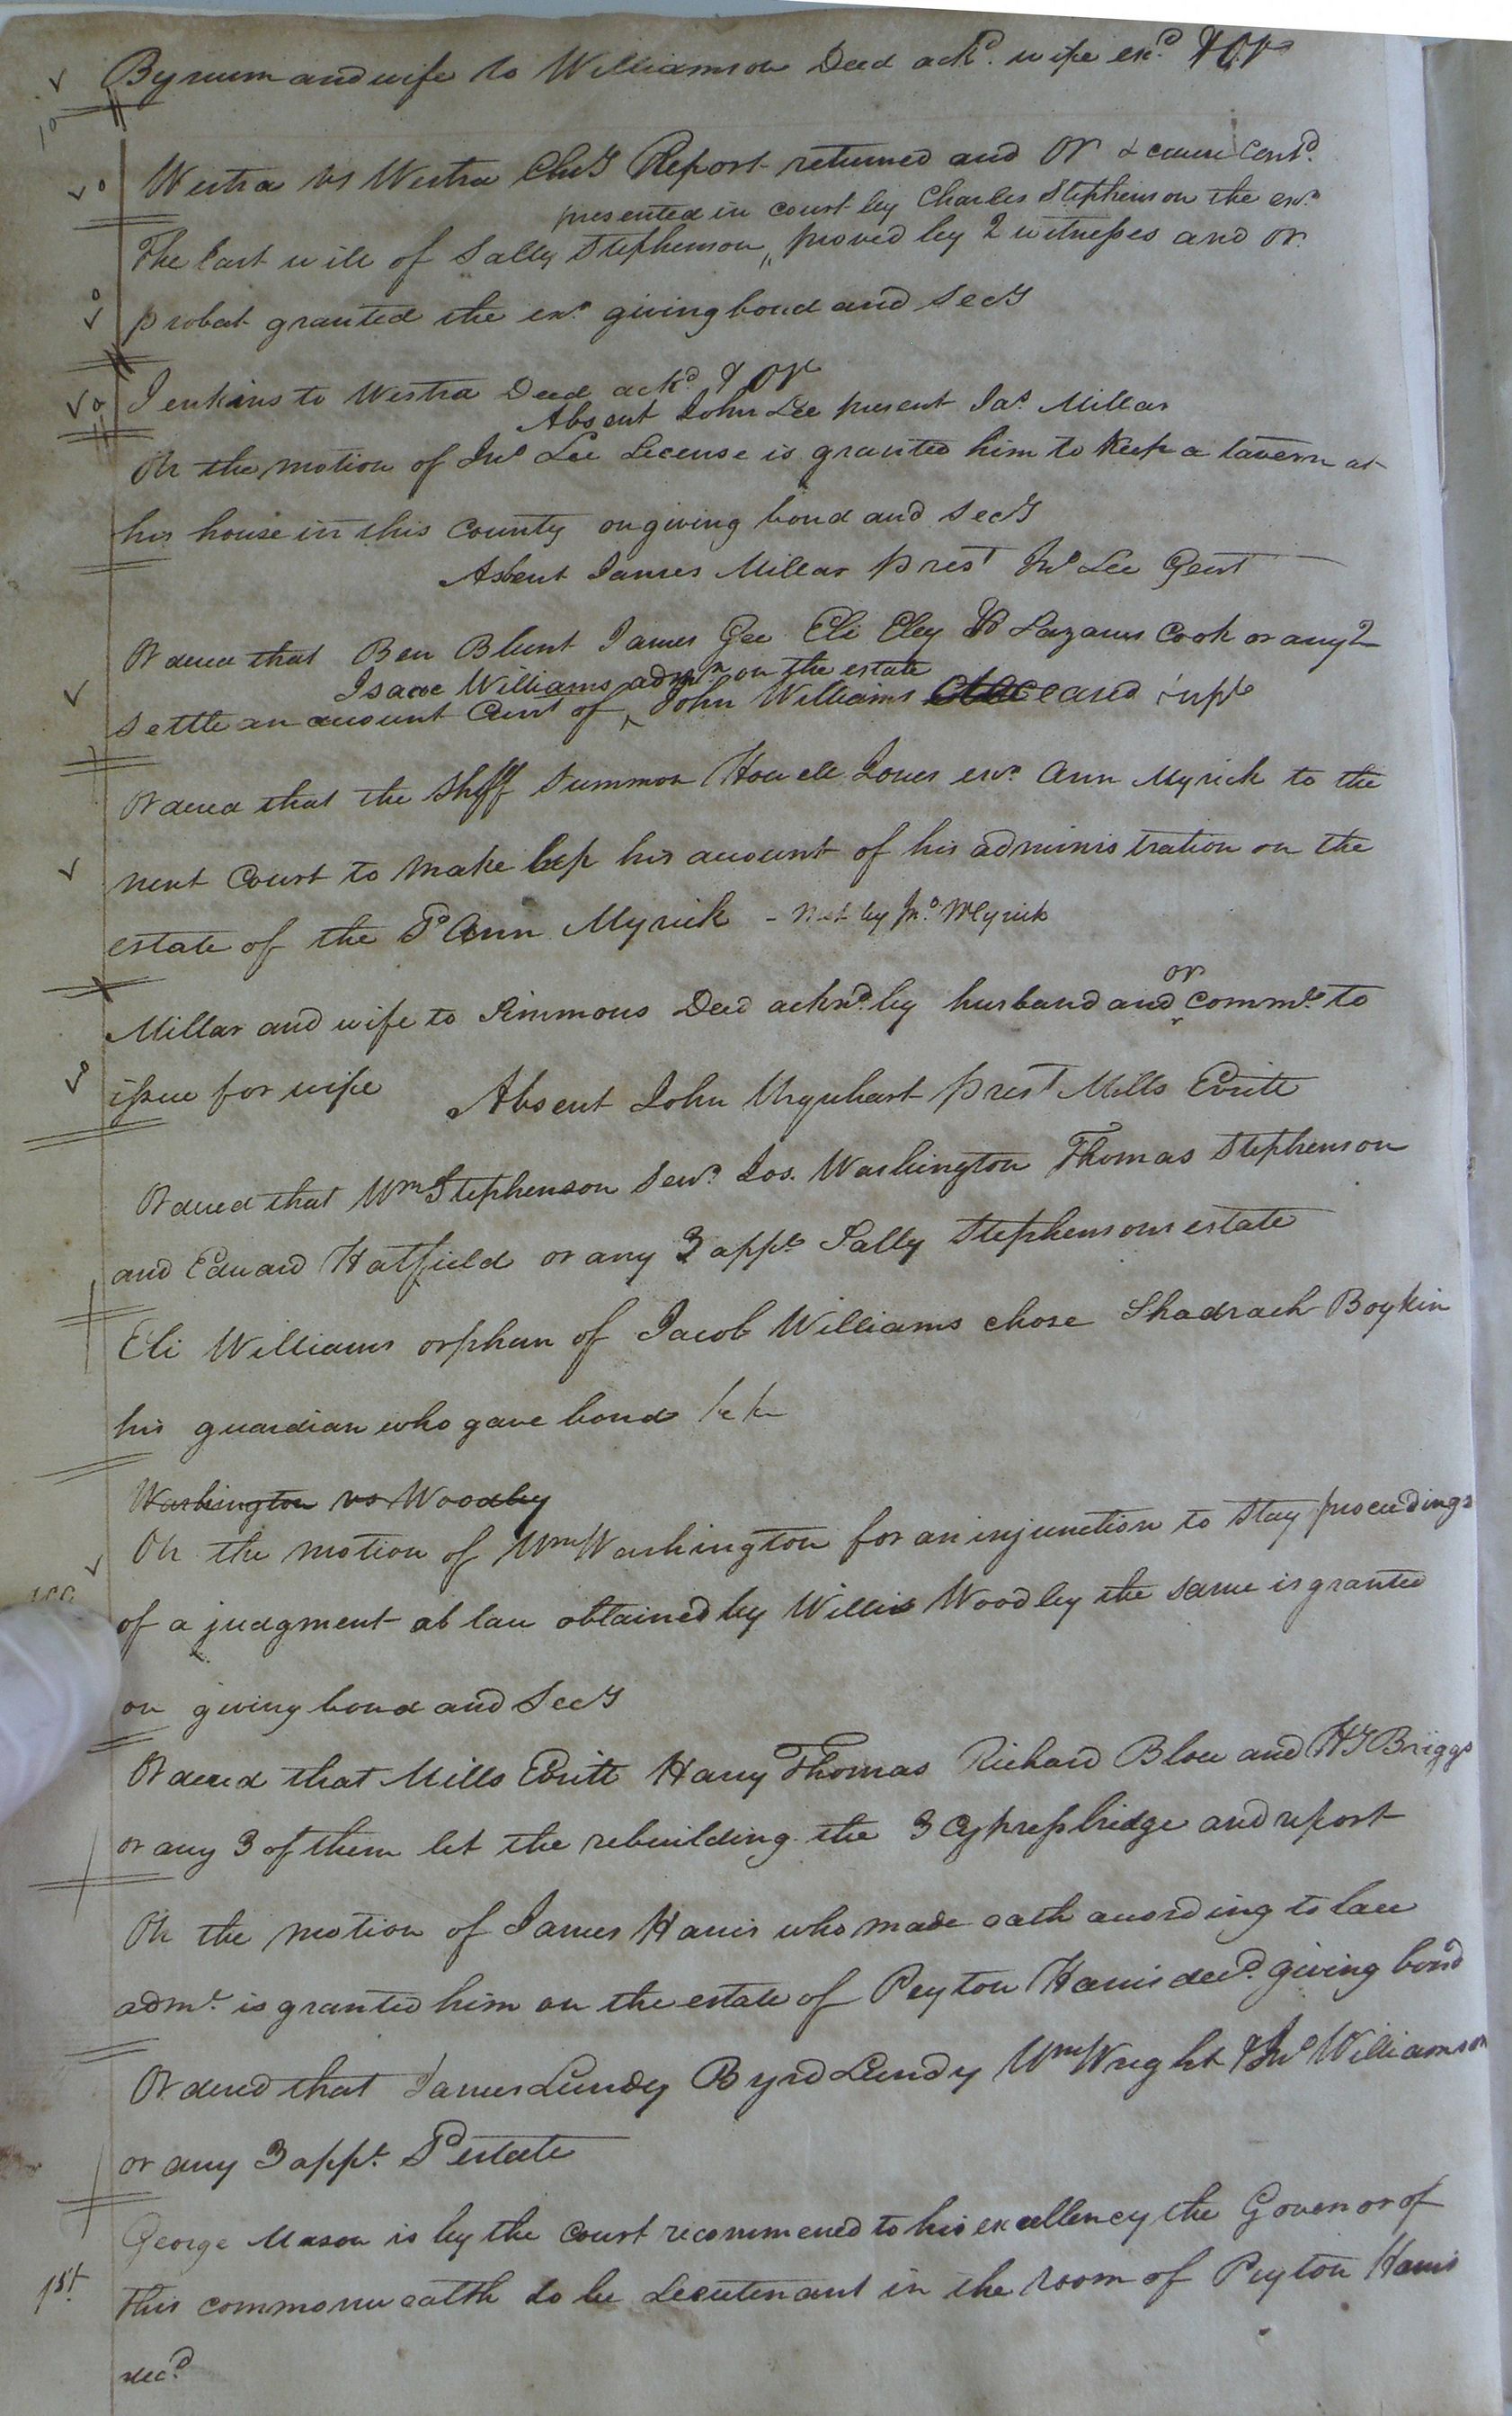 Bynum and wife to Williamson Deed ackd. wife exd. & OR
Westra vs Westra Chy Report returned and OR & cause contd.
presented in court by Charles Stephenson the exr.
The last will of Sally Stephenson, proved by 2 witnesses and OR
probat granted the exr. giving bond and Secy
Jenkins to Westra Deed ackd. & OR
Absent John Lee present Jas. Millar
On the motion of Jno Lee Lecense is granted him to keep a tavern at
his house in this County on giving bond and Secy
Absent James Millar prest Jno Lee Gent
Ordered that Ben Blunt James Gee Eli Eley & Lazarus Cook or any 2
Isaac Williams admr. on the estate
settle an account Curt of ^ John Williams decd and rept
Ordered that the Shff Summon Howell Jones exr. Ann Myrick to the
next Court to make up his account of his administration on the
estate of the Sd Ann Myrick - Mot. by Jno. Myrick
or
Millar and wife to Simmons Deed acknd. by husband and ^ commn. to
issue for wife
Absent John Urquhart prest Mills Eritt
Ordered that Wm Stephenson Senr. Jos. Washington Thomas Stephenson
and Edward Hatfield or any 3 appr. Sally Stephensons estate
Eli Williams orphan of Jacob Williams chose Shadrach Boykin
his guardian who gave bond &c &c
Washington vs Woodley
On the motion of Wm Washington for an injunction to stay proceedings
of a judgment at law obtained by Willis Woodley the same is granted
on giving bond and Secy
Ordered that Mills Eritt Harry Thomas Richard Blow and HJ Briggs
or any 3 of them let the rebuilding the 3 Cypress bridge and report
On the motion of James Harris who made oath according to law
admn. is granted him on the estate of Peyton Harris decd. giving bond
Ordered that James Lundy Byrd Lundy Wm Wright & Jno Williamson
or any 3 appr. Sd estate
George Mason is by the Court recommened to his excellency the Govenor of
1st.
this commonweatth to be Leeutenant in the room of Peyton Harris
decd.